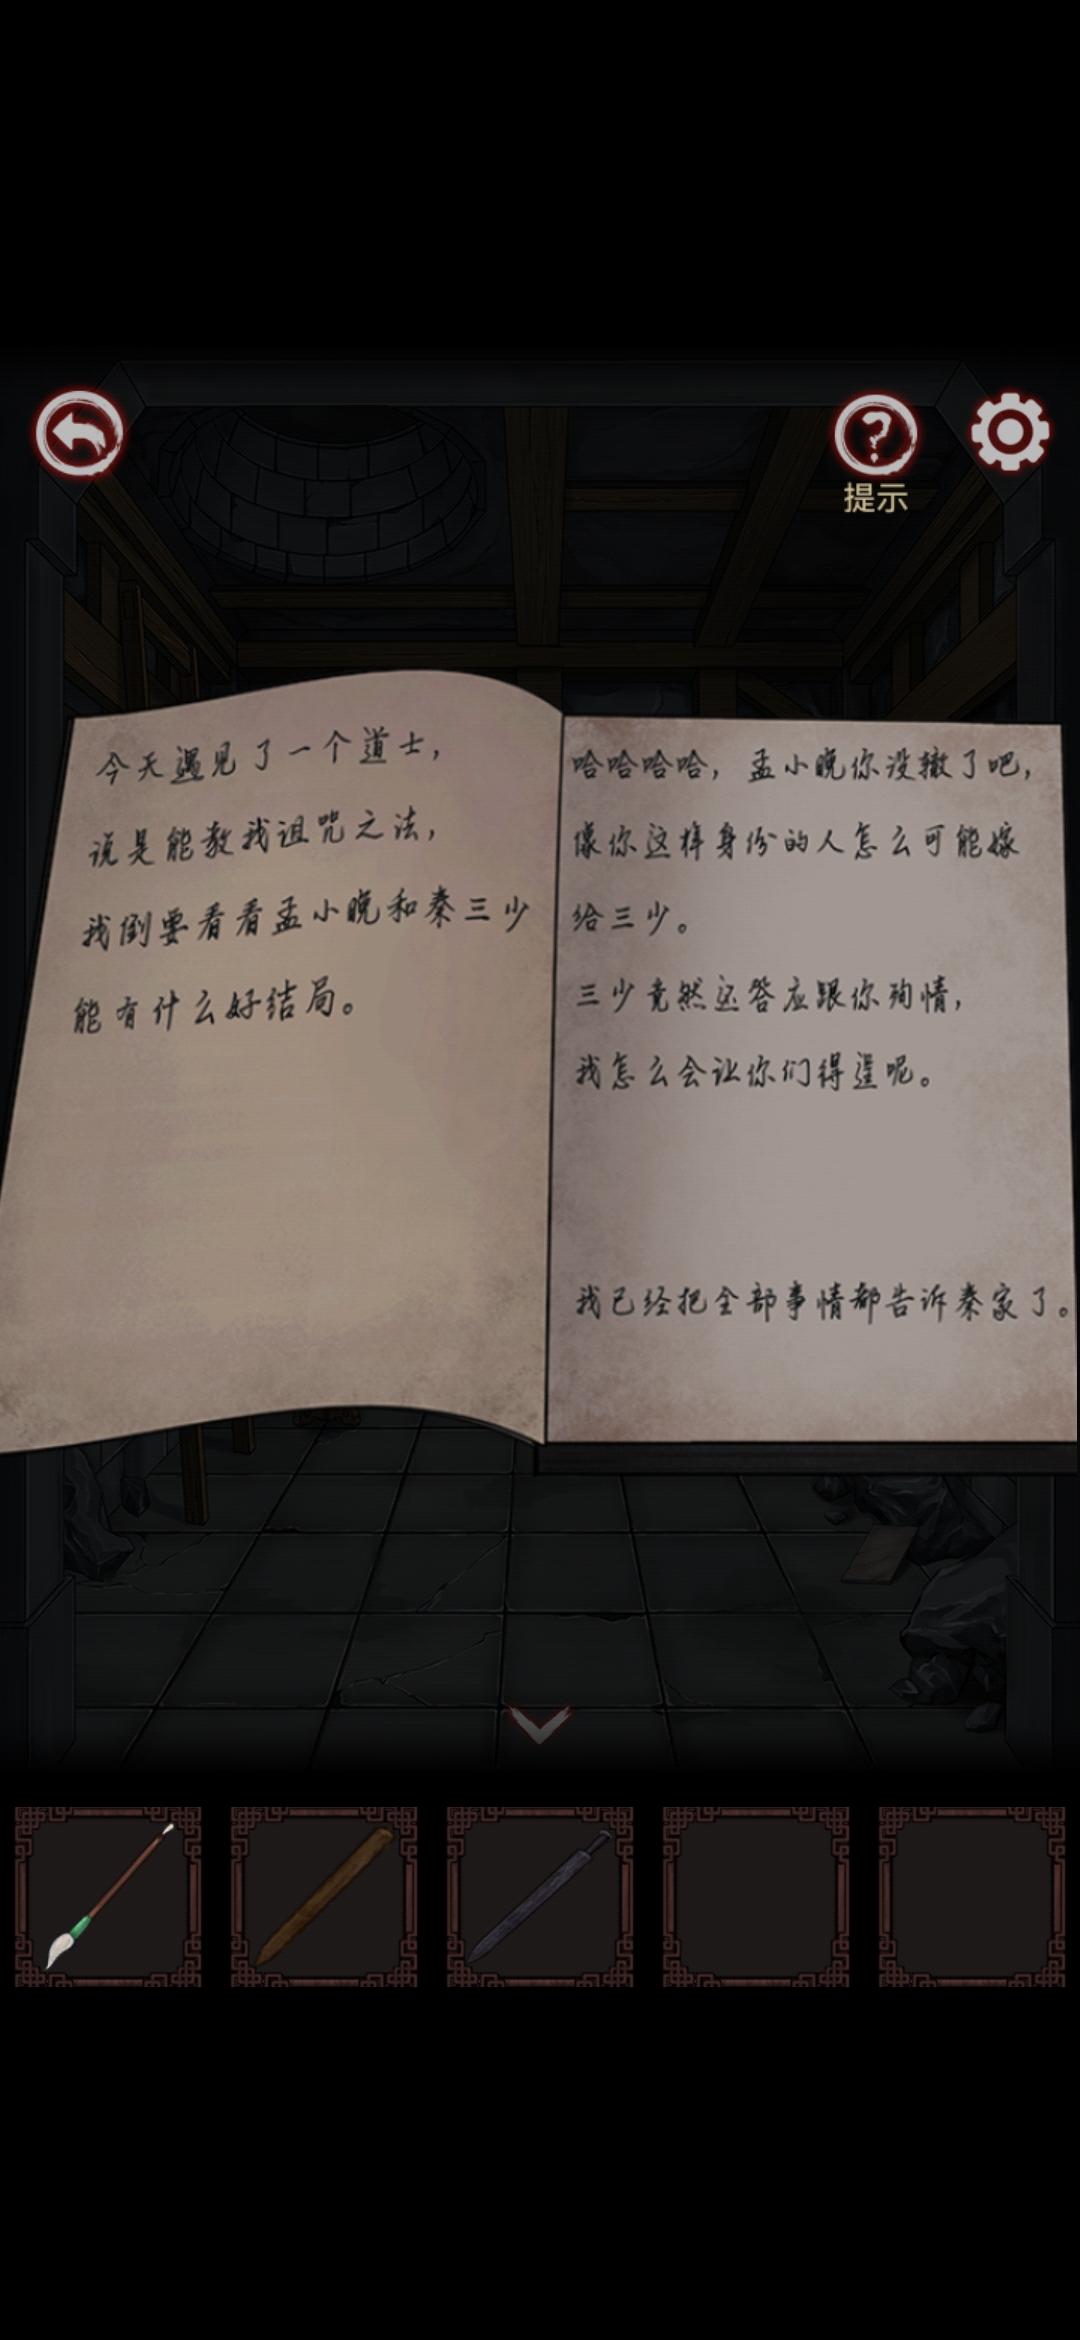 提示
今天遇见了一个道士，
说是能教我诅咒之法，
我倒要看看孟小晚和秦三少
能有什么好结局。
哈哈哈哈，孟小晚你没辙了吧，
像你这样身份的人怎么可能嫁
给三少。
三少竟然还答应跟你殉情，
我怎么会让你们得逞呢。
我已经把全部事情都告诉秦家了。